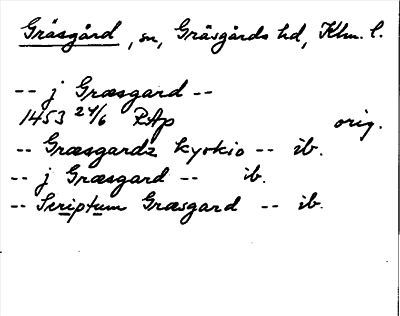 Gräsgård, sn, Gräsgårds hd, Klm. l.
-- j Græsgard --
1453 24/6 RAp orig.
-- Græsgardz kyrkio -- ib.
-- j Græsgard -- ib.
-- Scriptum Græsgard -- ib.